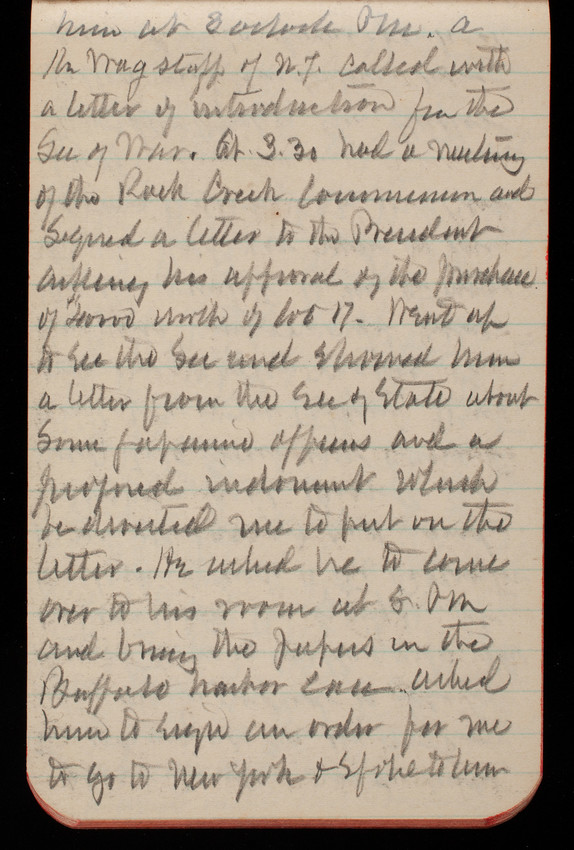 him at 8 oclock P.M. a
Mr Wagstaff of N.J. called with
a letter of introduction from the
Sec of War. At 3.30 had a meeting
of the Rock Creek Commission and
signed a letter to the President
asking his approval of the purchase
of worth of lot 17. Went up
to see the Sec and showed him
a letter from the Sec of State about
Some Japanese officers and a
proposed indorsement which
he directed me to put on the
letter. He asked me to come
over to his room at 8. P.M
and bring the papers in the
Buffalo harbor case. asked
him to sign an order for me
to go to New York & spoke to him